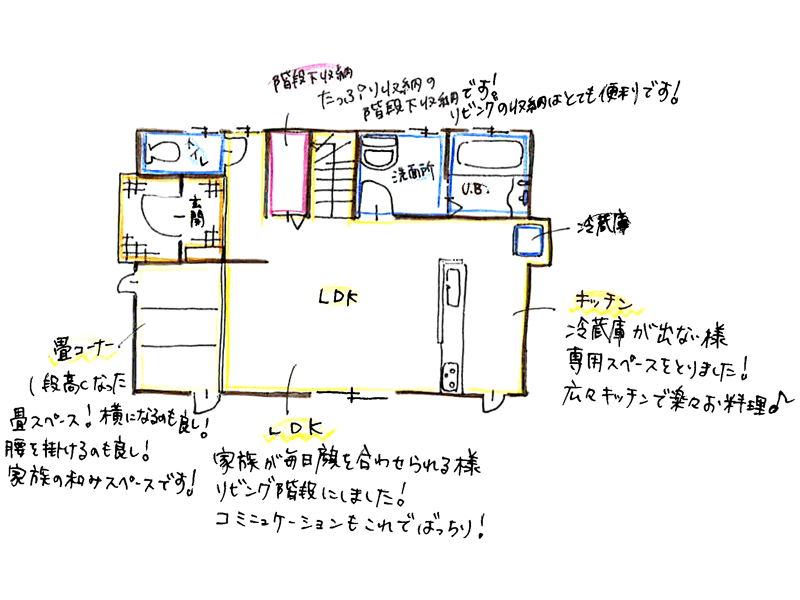 階段下収納
たっぷり収納の
階段下収納です！
リビングの収納はとても便利です！
トイレ
洗面所
U.B.
玄関
冷蔵庫
LDK
キッチン
冷蔵庫が出ない様
専用スペースをとりました！
広々キッチンで楽々お料理♪
畳コーナー
1段高くなった
畳スペース！横になるのも良し！
腰を掛けるのも良し！
家族の和みスペースです！
LDK
家族が毎日顔を合わせられる様
リビング階段にしました！
コミニュケーションもこれでばっちり！